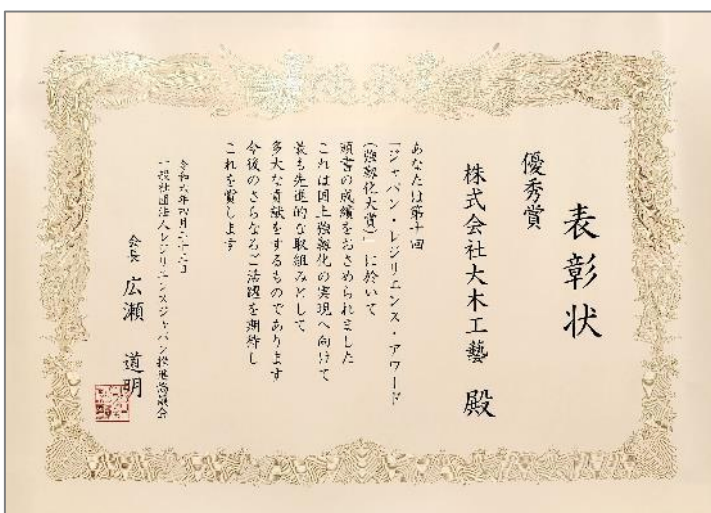 表彰状
優秀賞
株式会社大木工藝 殿
あなたは第十回
「ジャパン・レジリエンス・アワード
(強靱化大賞)」に於いて
頭書の成績をおさめられました
これは国土強靱化の実現へ向けて
最も先進的な取組みとして
多大な貢献をするものであります
今後のさらなるご活躍を期待し
これを賞します
令和六年四月二十二日
一般社団法人レジリエンスジャパン推進協議会
会長 広瀬 道明